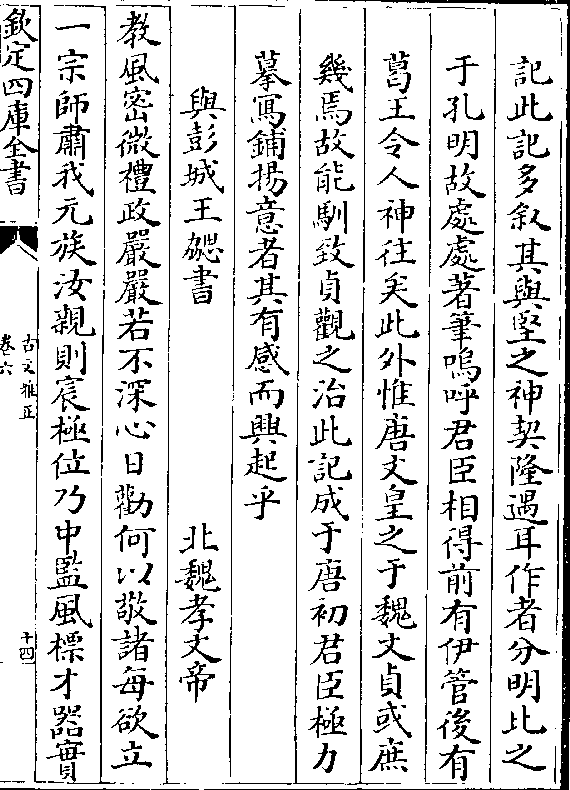 記此記多叙其與堅之神契隆遇耳作者分明比之
于孔明故處處著筆嗚呼君臣相得前有伊管後有
葛王令人神往矣此外惟唐文皇之于魏文貞或庶
幾焉故能馴致貞觀之治此記成于唐初君臣極力
摹寫鋪揚意者其有感而興起乎
與彭城王勰書　北魏孝文帝
教風密微禮政嚴嚴若不深心日勸何以敬諸每欲立
一宗師肅我元族汝親則宸極位乃中監風標才器實
欽定四庫全書
古文雅正
卷六
十四